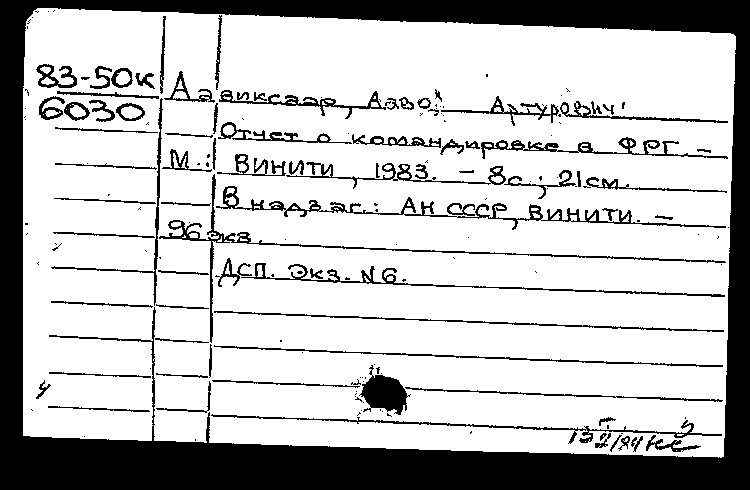 83-50к
6030
Аавиксаар, Аавo Артурович.
Отчет о командировке в ФРГ. -
М.: ВИНИТИ, 1983. - 8с.; 21см.
В надзаг.: АН СССР, ВИНИТИ. -
96 экз.
ДСП. Экз. N6.
у